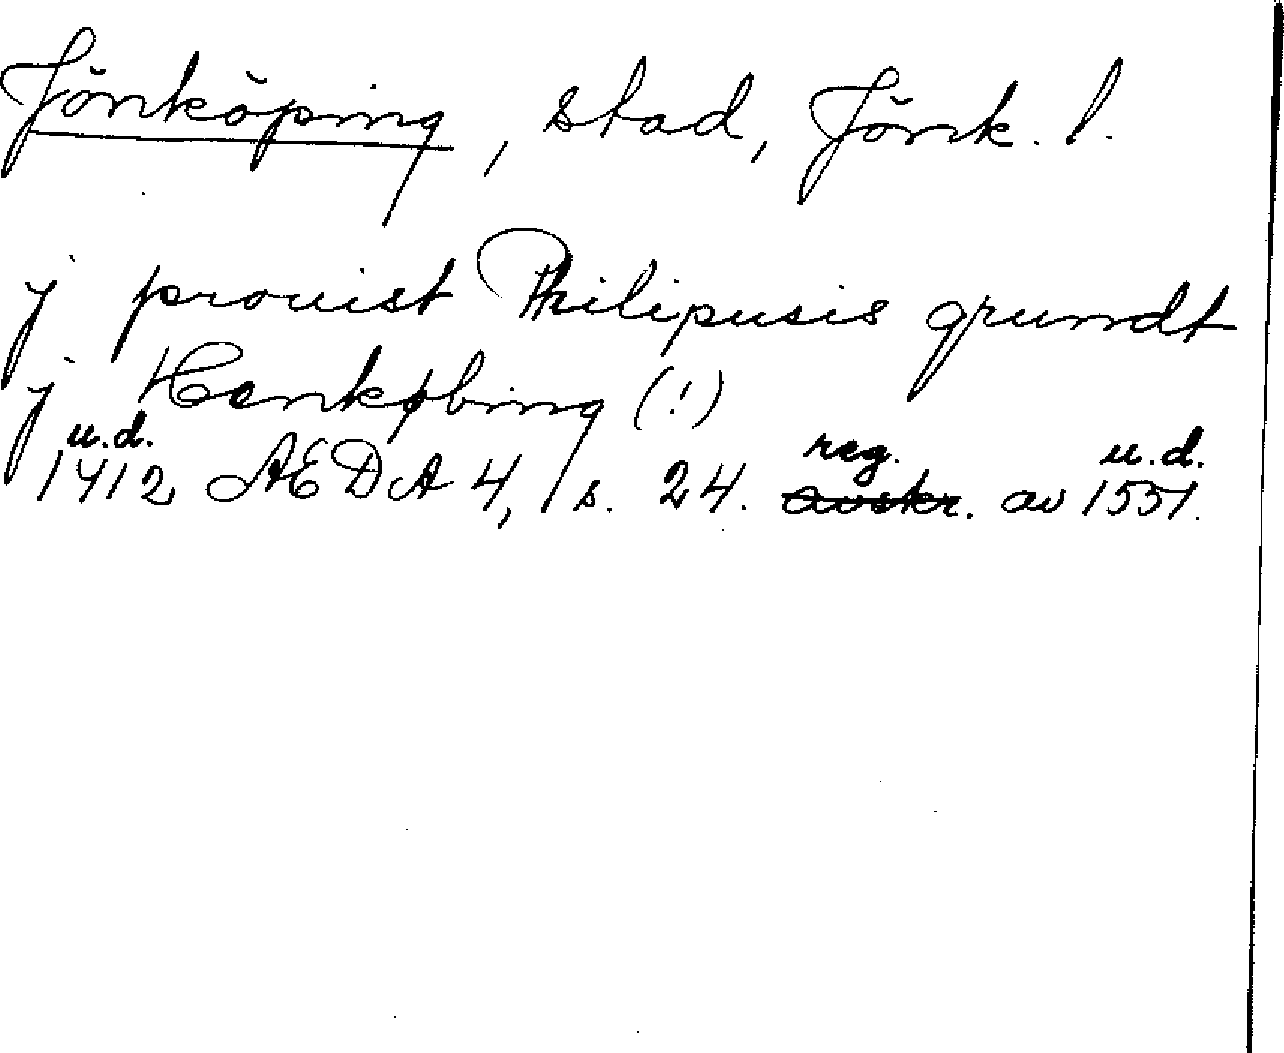 Jönköping, stad, Jönk. l.
j prouist Philipusis grundt
j Henkøbing (!)
u.d. reg. u.d.
1412 ÆDA 4, s. 24. avskr. av 1551.